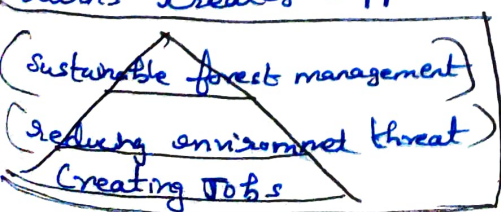 (Sustainable forest management)
(reducing enviromnet threat)
Creating Jobs